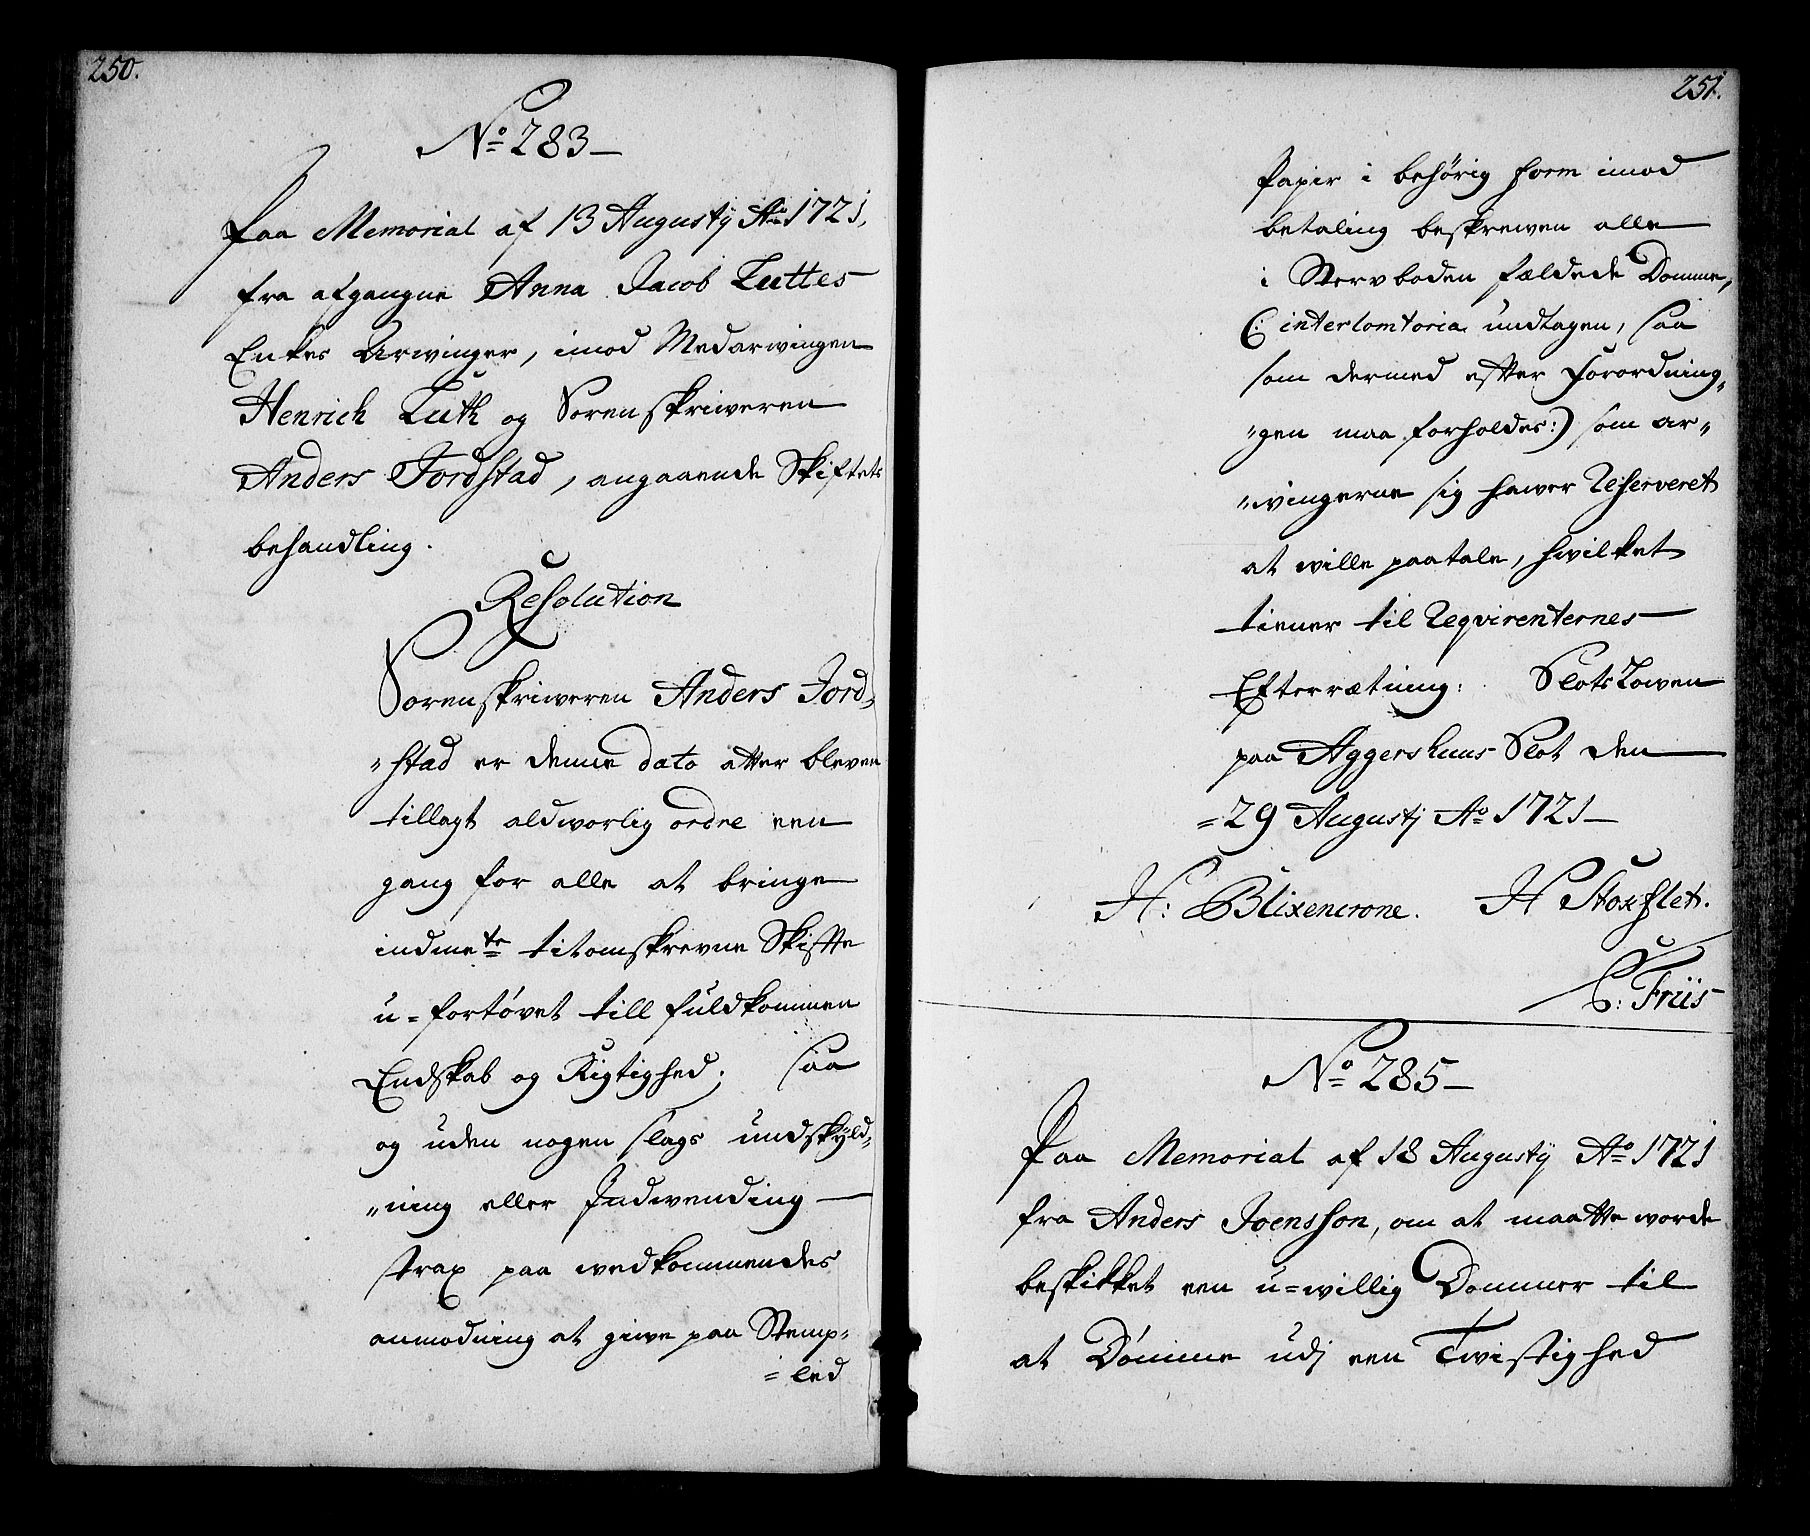 250.
No 283
Paa Memorial af 13 Augustij Ao 1721,
fra afgangne Anna Jacob Luttes
Enkes Arwinger, imod Medarwingen
Henrich Luth og Sorenskriweren
Anders Jordstad, angaaende Skiftets
behandling.
Resolution
Sorenskriweren Anders Jord,,
,,stad er denne dato atter bleven
tillagt aldworlig ordre een
gang for alle at bringe
indmelte titomskrevne Skifte
u=fortøvet till fuldkommen
Endskab og Rigtighed; saa
og uden nogen slags undskyld,,
,,ning eller Indwending
strax paa wedkommendes
anmodning at giwe paa Stemp,,
=led
251.
Papir i behørig form imod
betaling beskrewen alle
i Stervboden fældede Domme,
(: interlomtoria undtagen, saa
som dermed efter Forordning,,
,,gen maa forholdes:) som ar,,
,,wingerne sig hawer Reserveret
at wille paatale, hwilket
tiener til Reqvirenternes
Efterrætning: SlotsLowen
paa Aggershuus Slot den
=29 Augustj Ao 1721
H: Blixencrone. H Stoxflet.
C: Friis
No 285
Paa Memorial af 18 Augustij Ao 1721
fra Anders Joensson, om at maatte worde
beskikket een u=willig Dommer til
at Dømme udj een Twistighed